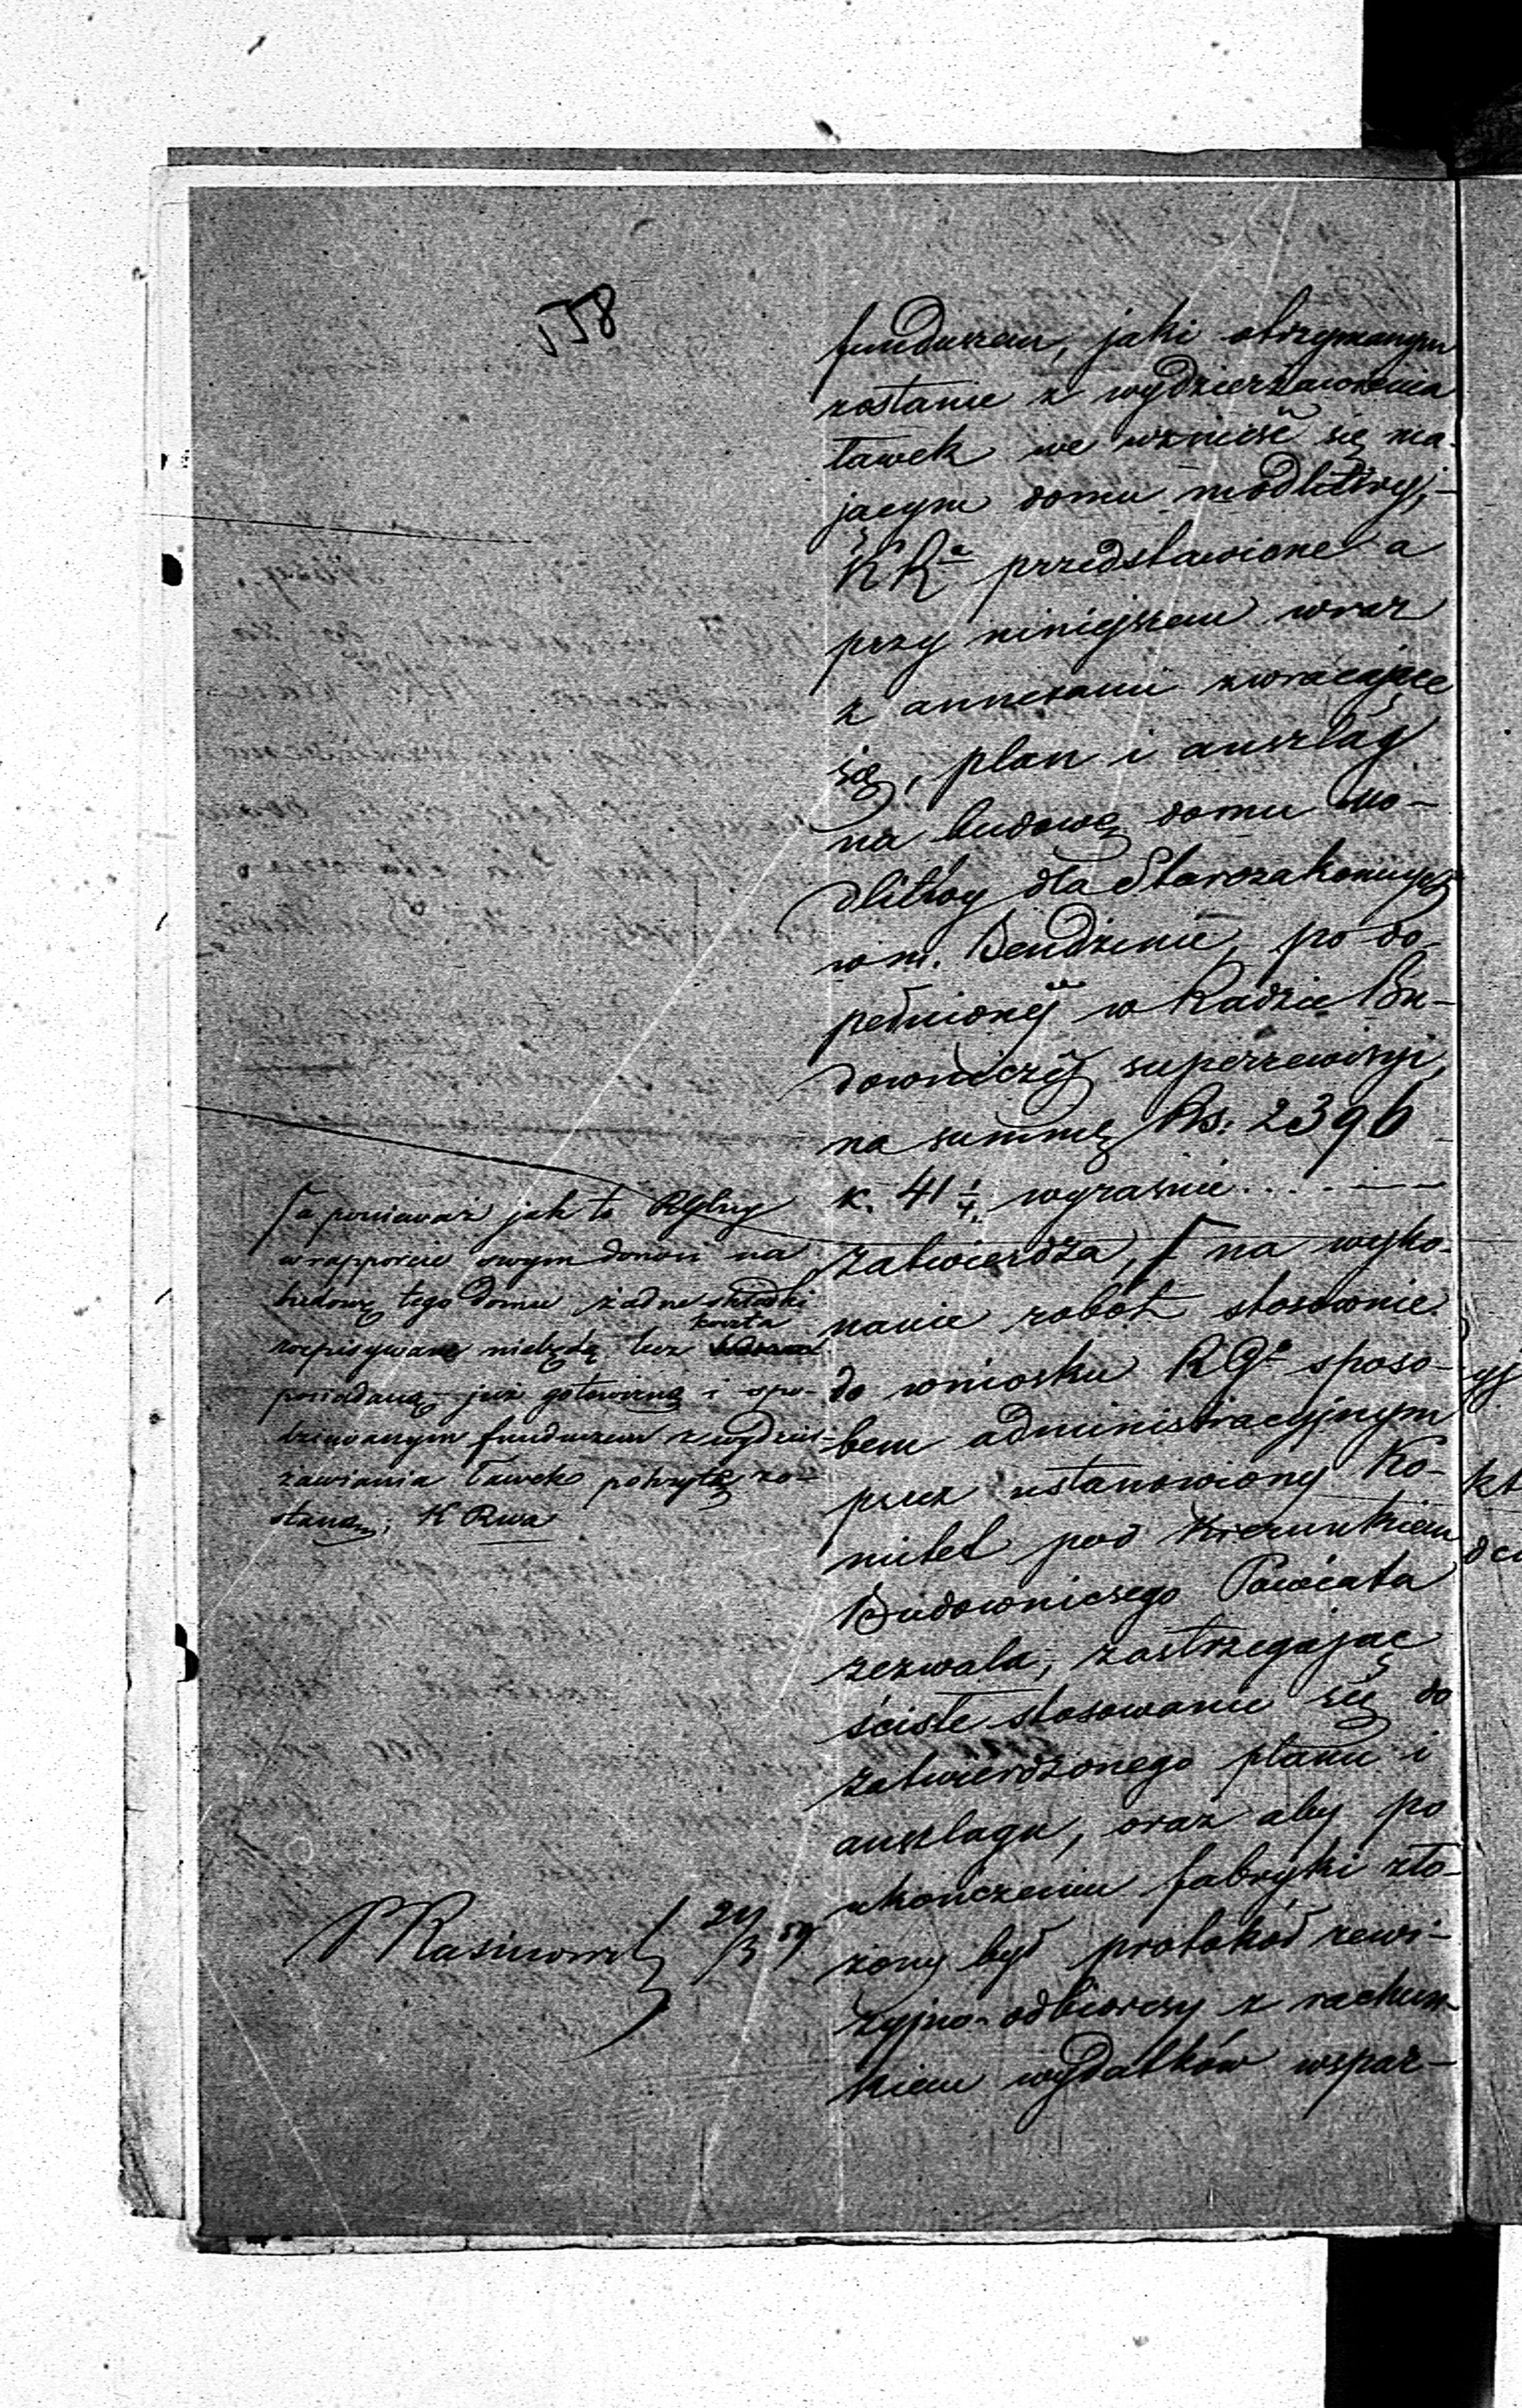 558
funduszem, jaki otrzymanym
zostanie z wydzierżawienia
ławek we wznieść się ma-
jącym domu modlitwy,-
KRa przedstawione a
przy niniejszem wraz
z annexami zwracające
się, plan i anszlag
na budowę domu mo-
dlitwy dla Starozakonnych
w m. Bendzinie, po do-
pełnionéj w Radzie Bu-
downiczéj superrewizyi,
na summę Rs: 2396
k. 41 1/4 wyraźnie . . . . — —
zatwierdza, ⌈ na wyko-
nanie robót stosownie
do wniosku RGo sposo-
bem administracyjnym
przez ustanowiony Ko-
mitet pod kierunkiem
Budowniczego Powiatu
zezwala, zastrzegając
ściste stosowanie się do
zatwierdzonego planu i
anszlagu, oraz aby po
ukończeniu fabryki zło-
żony był protokół rewi-
zyjno-odbiorczy z rachun-
kiem wydatków wspar-
⌈ a ponieważ jak to RGlny
w rapporcie swym donosi na
budowę tego domu żadne składki
rozpisywane niebędą lecz koszta
posiadaną już gotowizną i spo-
dziewanym funduszem z wydzier-
żawiania ławek pokryte zo-
staną; K Rwa
24/3 59